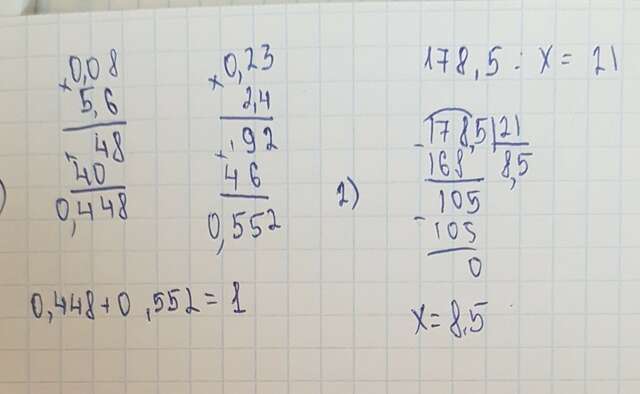 0,08
× 5,6
48
+ 40
0,448
0,448 + 0,552 = 1
0,23
× 2,4
+ 92
46
0,552
2)
178,5 : x = 21
- 178,5 | 21
168 8,5
105
- 105
0
x = 8,5